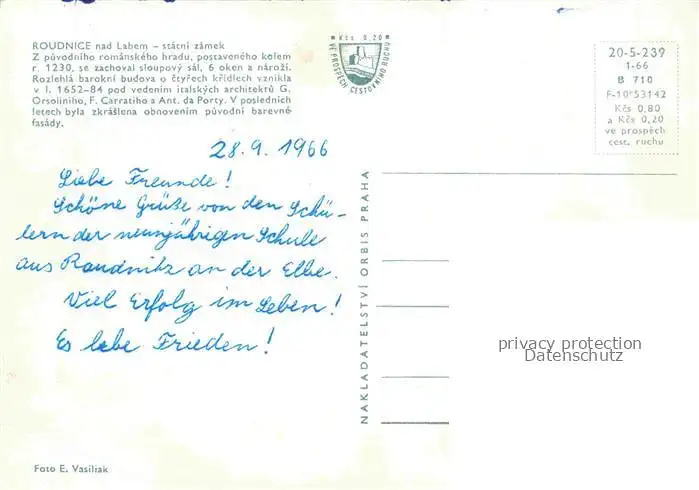 ROUDNICE nad Labem – státní zámek
Z původního románského hradu, postaveného kolem
r. 1230, se zachoval sloupový sál, 6 oken a nároží.
Rozlehlá barokní budova o čtyřech křídlech vznikla
v l. 1652–84 pod vedením italských architektů G.
Orsoliniho, F. Carratiho a Ant. da Porty. V posledních
letech byla zkrášlena obnovením původní barevné
fasády.
Kčs 0,20
VE PROSPĚCH CESTOVNÍHO RUCHU
20-5-239
1-66
B 710
F-10*53142
Kčs 0,80
a Kčs 0,20
ve prospěch
cest. ruchu
28. 9. 1966
Liebe Freunde!
Schöne Grüße von den Schü-
lern der neunjährigen Schule
aus Raudnitz an der Elbe.
Viel Erfolg im Leben!
Es lebe Frieden!
NAKLADATELSTVÍ ORBIS PRAHA
privacy protection
Datenschutz
Foto E. Vasiliak